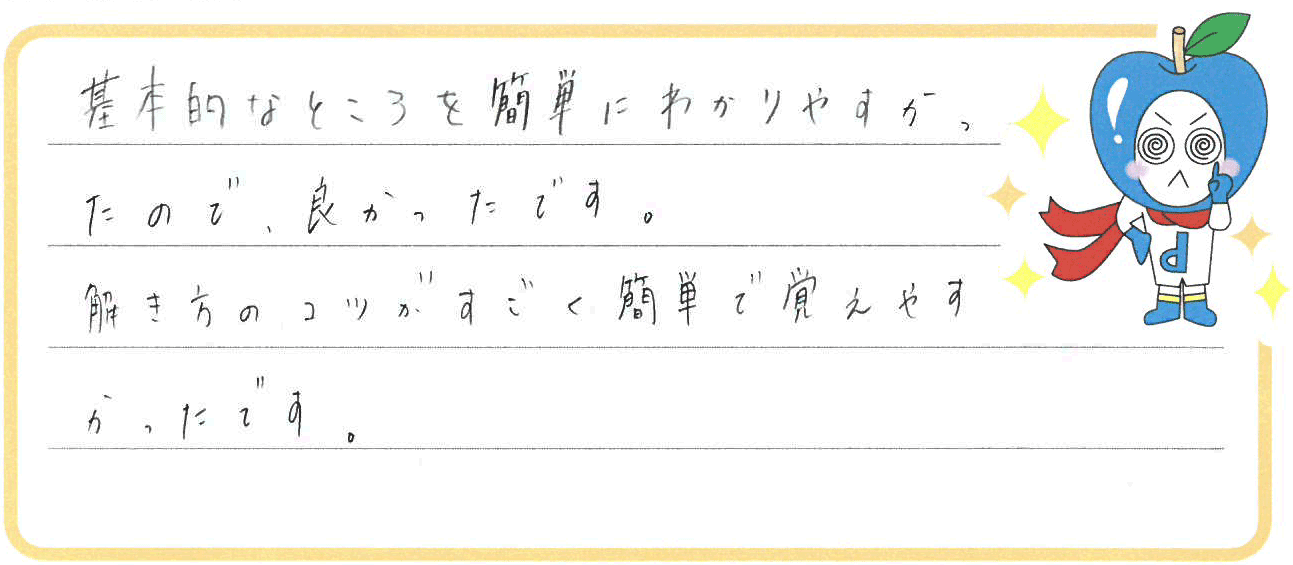 基本的なところを簡単にわかりやすかっ
たので、良かったです。
解き方のコツがすごく簡単で覚えやす
かったです。